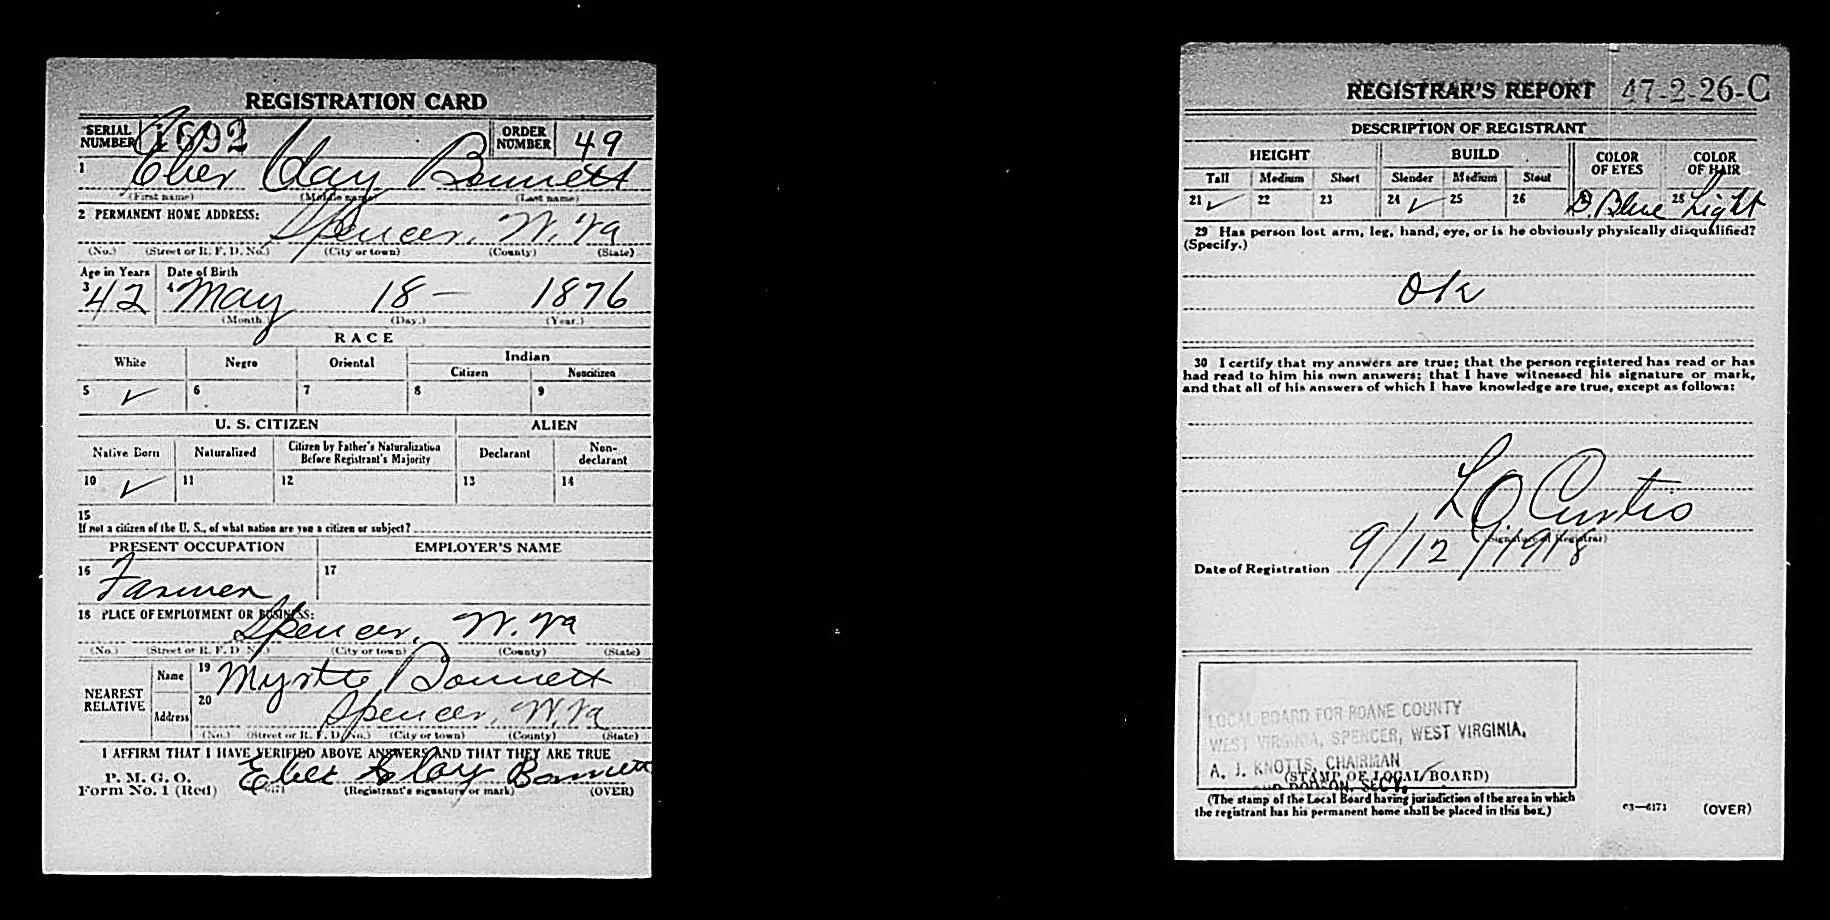 REGISTRATION CARD
SERIAL NUMBER 1692 ORDER NUMBER 49
1 Eber Clay Bonnett
(First name) (Middle name) (Last name)
2 PERMANENT HOME ADDRESS:
Spencer, W. Va
(No.) (Street or R. F. D. No.) (City or town) (County) (State)
Age in Years Date of Birth
3 42 4 May 18 — 1876
(Month.) (Day.) (Year.)
RACE
White Negro Oriental Indian
Citizen Noncitizen
5 ✓ 6 7 8 9
U. S. CITIZEN ALIEN
Native Born Naturalized Citizen by Father's Naturalization Before Registrant's Majority Declarant Non-declarant
10 ✓ 11 12 13 14
15
If not a citizen of the U. S., of what nation are you a citizen or subject?
PRESENT OCCUPATION EMPLOYER'S NAME
16 Farmer 17
18 PLACE OF EMPLOYMENT OR BUSINESS:
Spencer, W. Va
(No.) (Street or R. F. D. No.) (City or town) (County) (State)
NEAREST RELATIVE Name 19 Myrtle Bonnett
Address 20 Spencer, W. Va
(No.) (Street or R. F. D. No.) (City or town) (County) (State)
I AFFIRM THAT I HAVE VERIFIED ABOVE ANSWERS AND THAT THEY ARE TRUE
P. M. G. O.
Form No. 1 (Red) Eber Clay Bonnett
(Registrant's signature or mark) (OVER)
REGISTRAR'S REPORT 47-2-26-C
DESCRIPTION OF REGISTRANT
HEIGHT BUILD COLOR OF EYES COLOR OF HAIR
Tall Medium Short Slender Medium Stout
21 ✓ 22 23 24 ✓ 25 26 B. Blue 28 Light
29 Has person lost arm, leg, hand, eye, or is he obviously physically disqualified?
(Specify.)
OK
30 I certify that my answers are true; that the person registered has read or has
had read to him his own answers; that I have witnessed his signature or mark,
and that all of his answers of which I have knowledge are true, except as follows:
L O Curtis
(Signature of Registrar)
Date of Registration 9/12/1918
LOCAL BOARD FOR ROANE COUNTY
WEST VIRGINIA, SPENCER, WEST VIRGINIA,
A. J. KNOTTS, CHAIRMAN
(STAMP OF LOCAL BOARD)
DODSON, SECY.
(The stamp of the Local Board having jurisdiction of the area in which
the registrant has his permanent home shall be placed in this box.)
03—6171 (OVER)